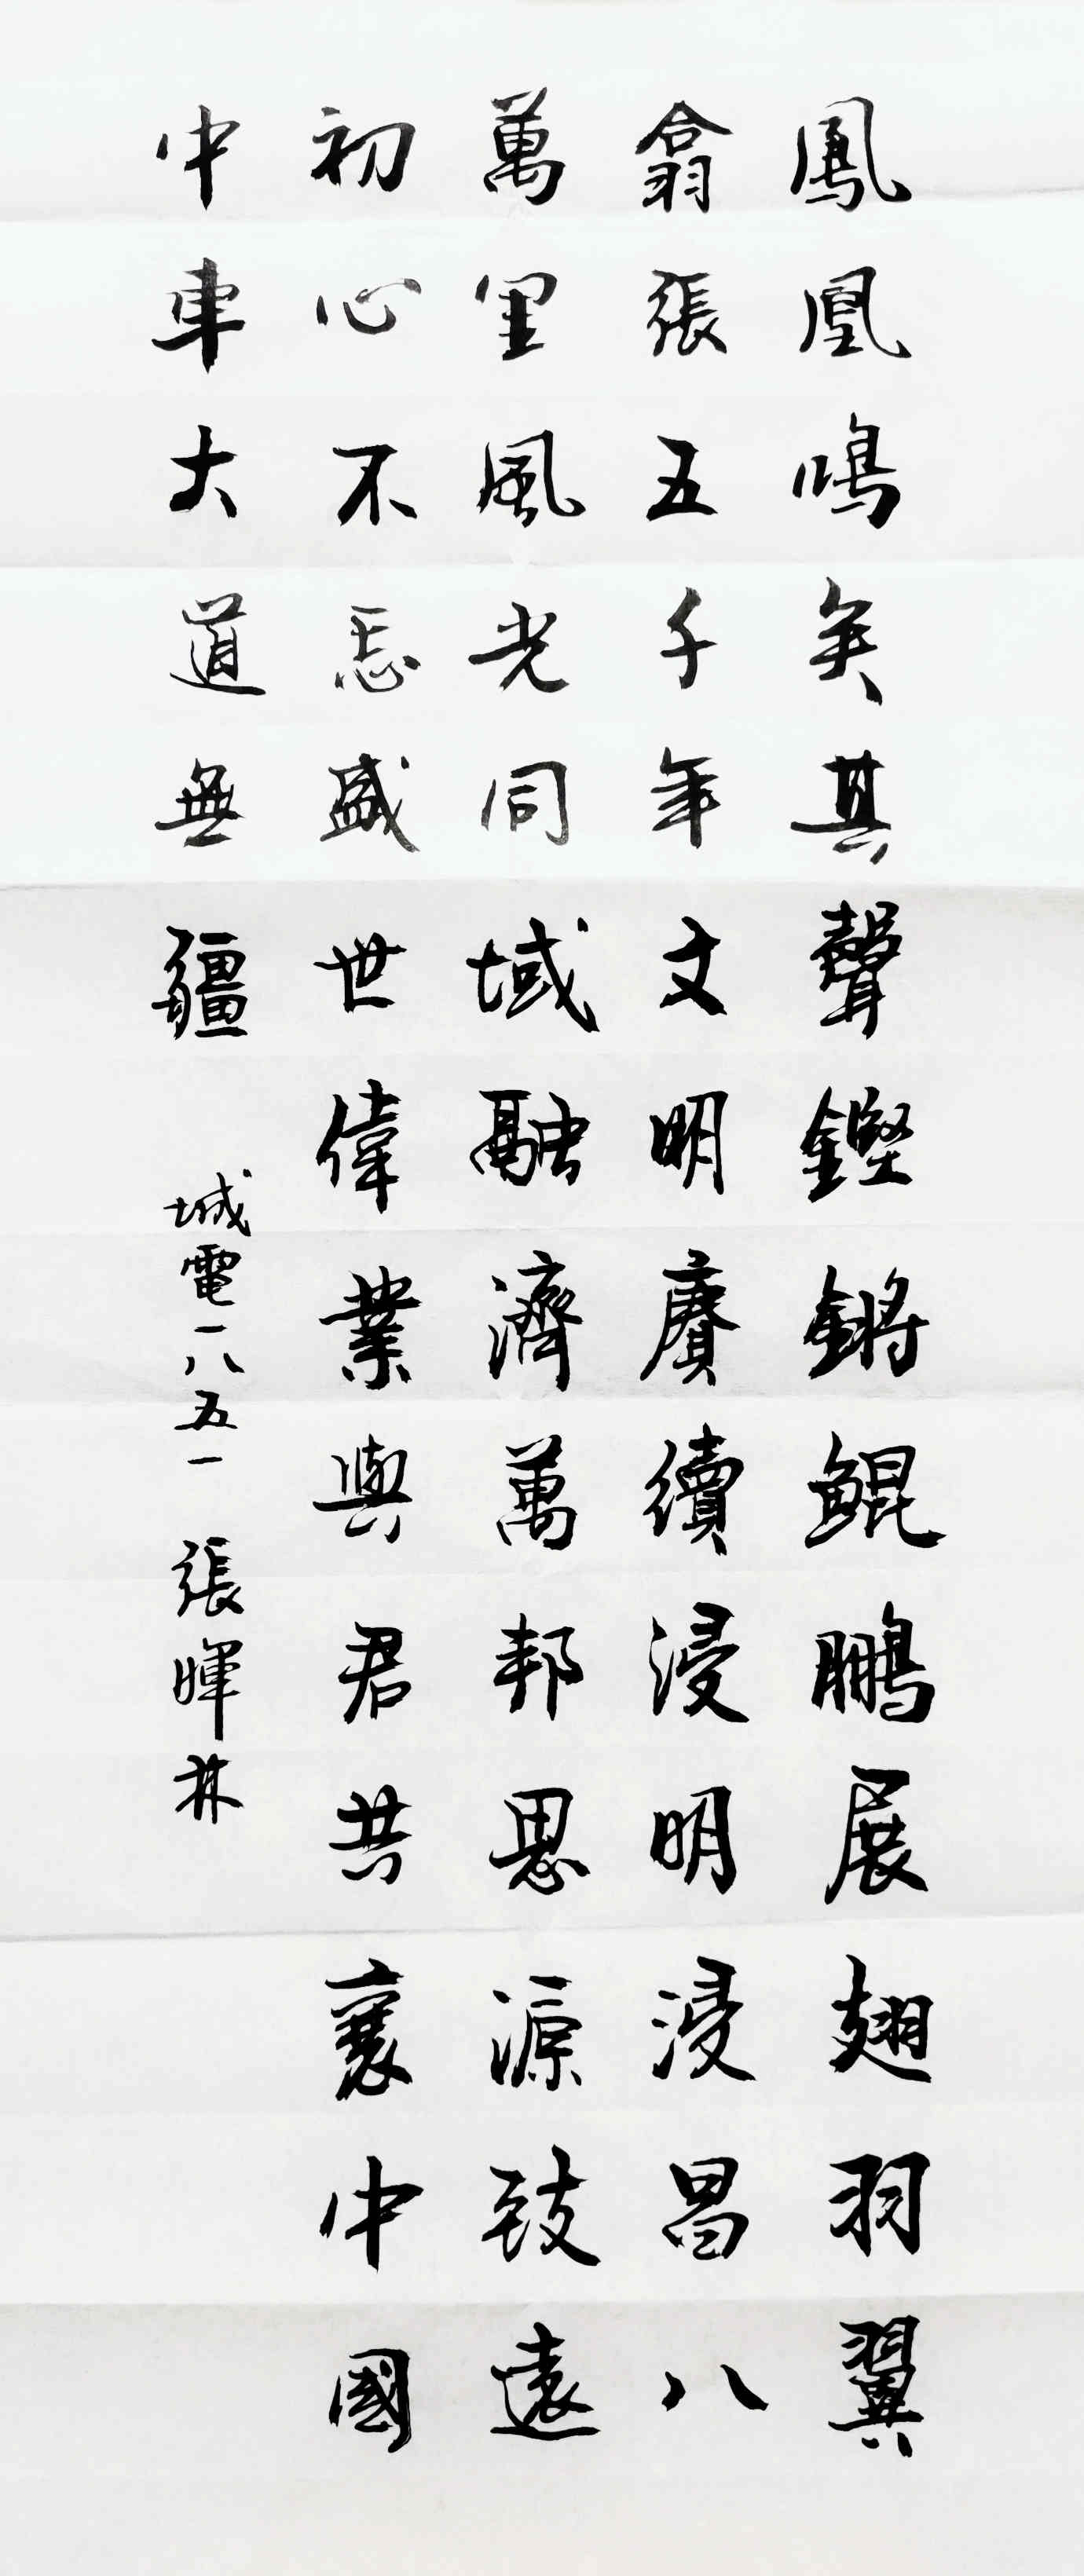 鳳凰鳴矣其聲鏗鏘鯤鵬展翅羽翼
翕張五千年文明賡續浸明浸昌八
萬里風光同域融濟萬邦思源致遠
初心不忘盛世偉業與君共襄中國
中車大道無疆
城電一八五一 張暉林